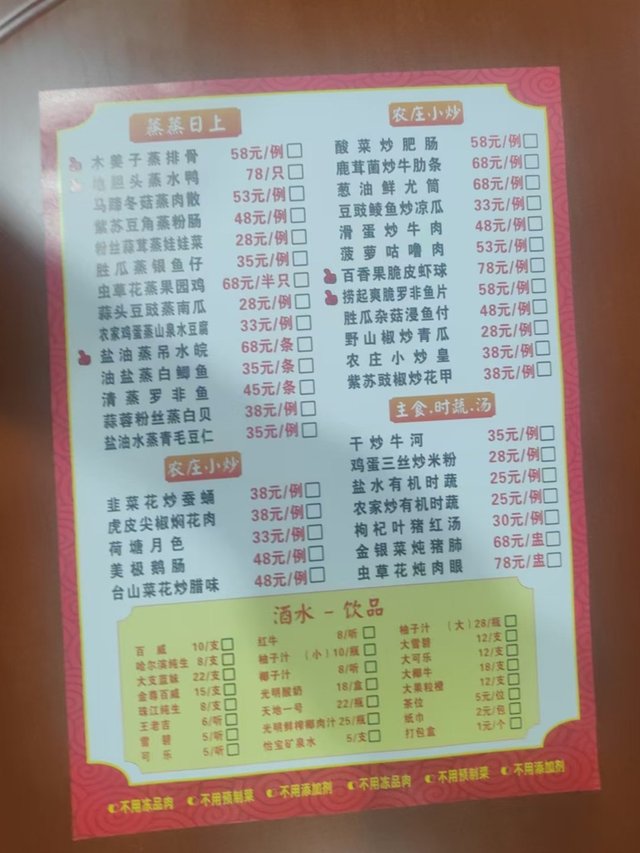 蒸蒸日上
木姜子蒸排骨 58元/例
地胆头蒸水鸭 78/只
马蹄冬菇蒸肉散 53元/例
紫苏豆角蒸粉肠 48元/例
粉丝蒜茸蒸娃娃菜 28元/例
胜瓜蒸银鱼仔 35元/例
虫草花蒸果园鸡 68元/半只
蒜头豆豉蒸南瓜 28元/例
农家鸡蛋蒸山泉水豆腐 33元/例
盐油蒸吊水皖 68元/条
油盐蒸白鲫鱼 35元/条
清蒸罗非鱼 45元/条
蒜蓉粉丝蒸白贝 38元/例
盐油水蒸青毛豆仁 35元/例
农庄小炒
韭菜花炒蚕蛹 38元/例
虎皮尖椒焖花肉 38元/例
荷塘月色 33元/例
美极鹅肠 48元/例
台山菜花炒腊味 48元/例
农庄小炒
酸菜炒肥肠 58元/例
鹿茸菌炒牛肋条 68元/例
葱油鲜尤筒 68元/例
豆豉鲮鱼炒凉瓜 33元/例
滑蛋炒牛肉 48元/例
菠萝咕噜肉 53元/例
百香果脆皮虾球 78元/例
捞起爽脆罗非鱼片 58元/例
胜瓜杂菇浸鱼付 48元/例
野山椒炒青瓜 28元/例
农庄小炒皇 38元/例
紫苏豉椒炒花甲 38元/例
主食.时蔬.汤
干炒牛河 35元/例
鸡蛋三丝炒米粉 28元/例
盐水有机时蔬 25元/例
农家炒有机时蔬 25元/例
枸杞叶猪红汤 30元/例
金银菜炖猪肺 68元/盅
虫草花炖肉眼 78元/盅
酒水 - 饮品
百威 10/支
哈尔滨纯生 8/支
大支蓝妹 22/支
金尊百威 15/支
珠江纯生 8/支
王老吉 6/听
雪碧 5/听
可乐 5/听
红牛 8/听
柚子汁 （小）10/瓶
椰子汁 8/听
光明酸奶 18/盒
天地一号 22/瓶
光明鲜榨椰肉汁 25/瓶
怡宝矿泉水 5/支
柚子汁 （大）28/瓶
大雪碧 12/支
大可乐 12/支
大椰牛 18/支
大果粒橙 12/支
茶位 5元/位
纸巾 2元/包
打包盒 1元/个
不用冻品肉 不用预制菜 不用添加剂 不用冻品肉 不用预制菜 不用添加剂